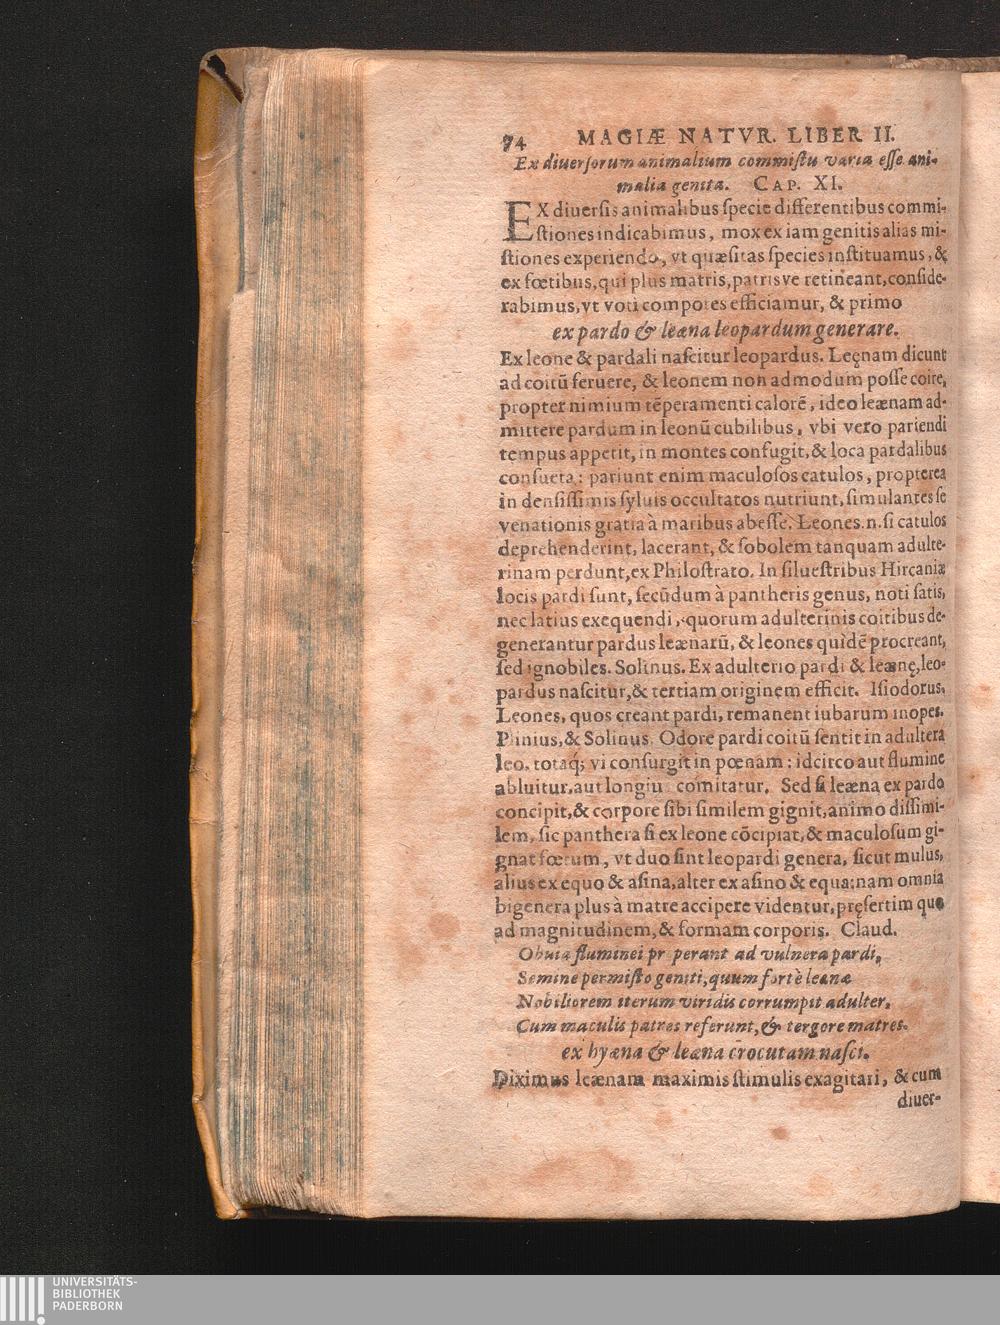 74 MAGIÆ NATVR. LIBER II.
Ex diuerſorum animalium commiſtu varia eſſe ani-
malia genita. CAP. XI.
EX diuerſis animalibus ſpecie differentibus commi-
ſtiones indicabimus, mox ex iam genitis alias mi-
ſtiones experiendo, vt quæſitas ſpecies inſtituamus, &
ex fœtibus, qui plus matris, patrisve retineant, conſide-
rabimus, vt voti compotes efficiamur, & primo
ex pardo & leæna leopardum generare.
Ex leone & pardali naſcitur leopardus. Leęnam dicunt
ad coitũ feruere, & leonem non admodum poſſe coire,
propter nimium tẽperamenti calorẽ, ideo leænam ad-
mittere pardum in leonũ cubilibus, vbi vero pariendi
tempus appetit, in montes confugit, & loca pardalibus
conſueta: pariunt enim maculoſos catulos, propterea
in denſiſſimis ſyluis occultatos nutriunt, ſimulantes ſe
venationis gratia à maribus abeſſe. Leones.n.ſi catulos
deprehenderint, lacerant, & ſobolem tanquam adulte-
rinam perdunt, ex Philoſtrato. In ſilueſtribus Hircaniæ
locis pardi ſunt, ſecũdum à pantheris genus, noti ſatis,
nec latius exequendi, quorum adulterinis coitibus de-
generantur pardus leænarũ, & leones quidẽ procreant,
ſed ignobiles. Solinus. Ex adulterio pardi & leænę, leo-
pardus naſcitur, & tertiam originem efficit. Iſiodorus,
Leones, quos creant pardi, remanent iubarum inopes.
Plinius, & Solinus. Odore pardi coitũ ſentit in adultera
leo, totaq; vi conſurgit in pœnam: idcirco aut flumine
abluitur, aut longiu comitatur. Sed ſi leæna ex pardo
concipit, & corpore ſibi ſimilem gignit, animo diſſimi-
lem, ſic panthera ſi ex leone cõcipiat, & maculoſum gi-
gnat fœtum, vt duo ſint leopardi genera, ſicut mulus,
alius ex equo & aſina, alter ex aſino & equa: nam omnia
bigenera plus à matre accipere videntur, pręſertim quo
ad magnitudinem, & formam corporis. Claud.
Obuia fluminei pr perant ad vulnera pardi,
Semine permiſto geniti, quum fortè leænæ
Nobiliorem uterum viridis corrumpit adulter,
Cum maculis patres referunt, & tergore matres.
ex hyæna & leæna crocutam naſci.
Diximus leænam maximis ſtimulis exagitari, & cum
diuer-
UNIVERSITÄTS-
BIBLIOTHEK
PADERBORN